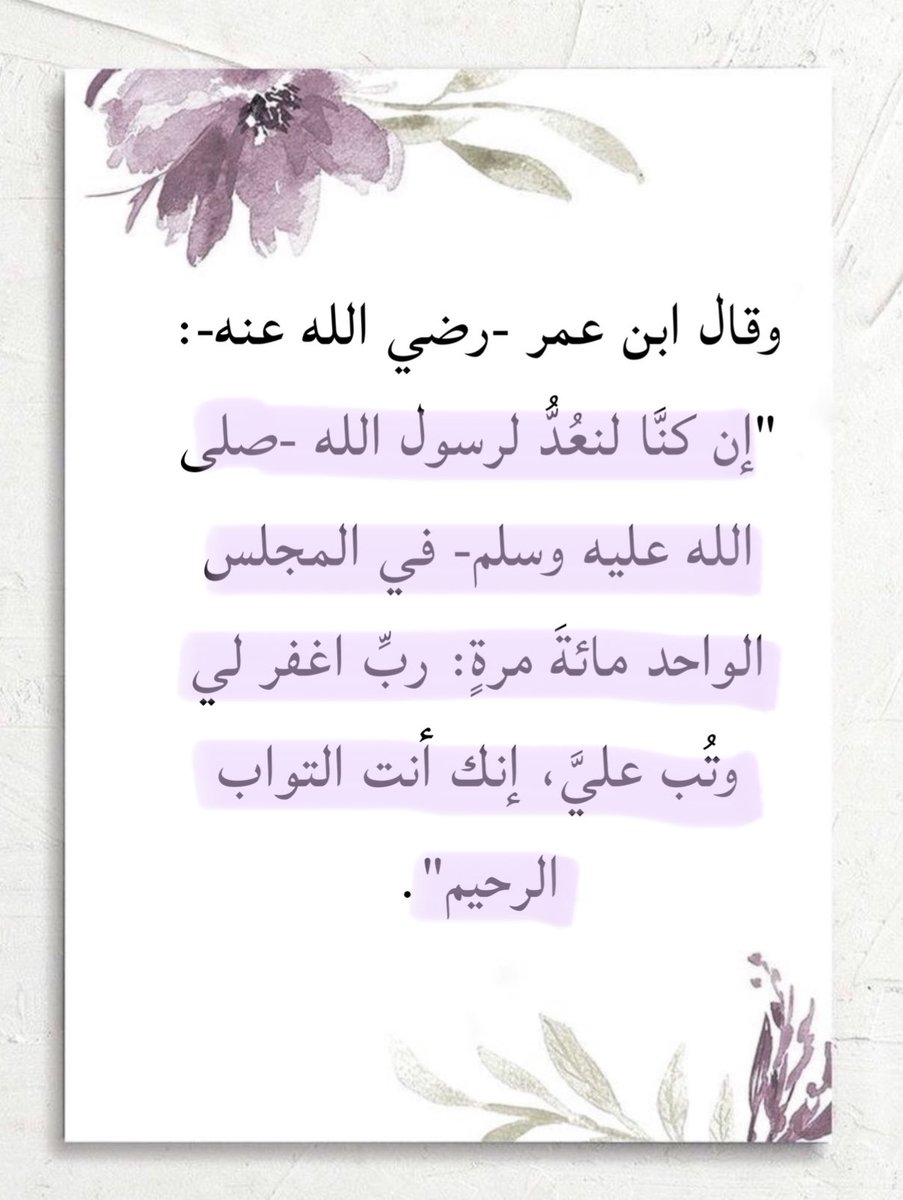 وقال ابن عمر -رضي الله عنه-:
"إن كنَّا لنعُدُّ لرسول الله -صلى
الله عليه وسلم- في المجلس
الواحد مائةَ مرةٍ: ربِّ اغفر لي
وتُب عليَّ، إنك أنت التواب
الرحيم".